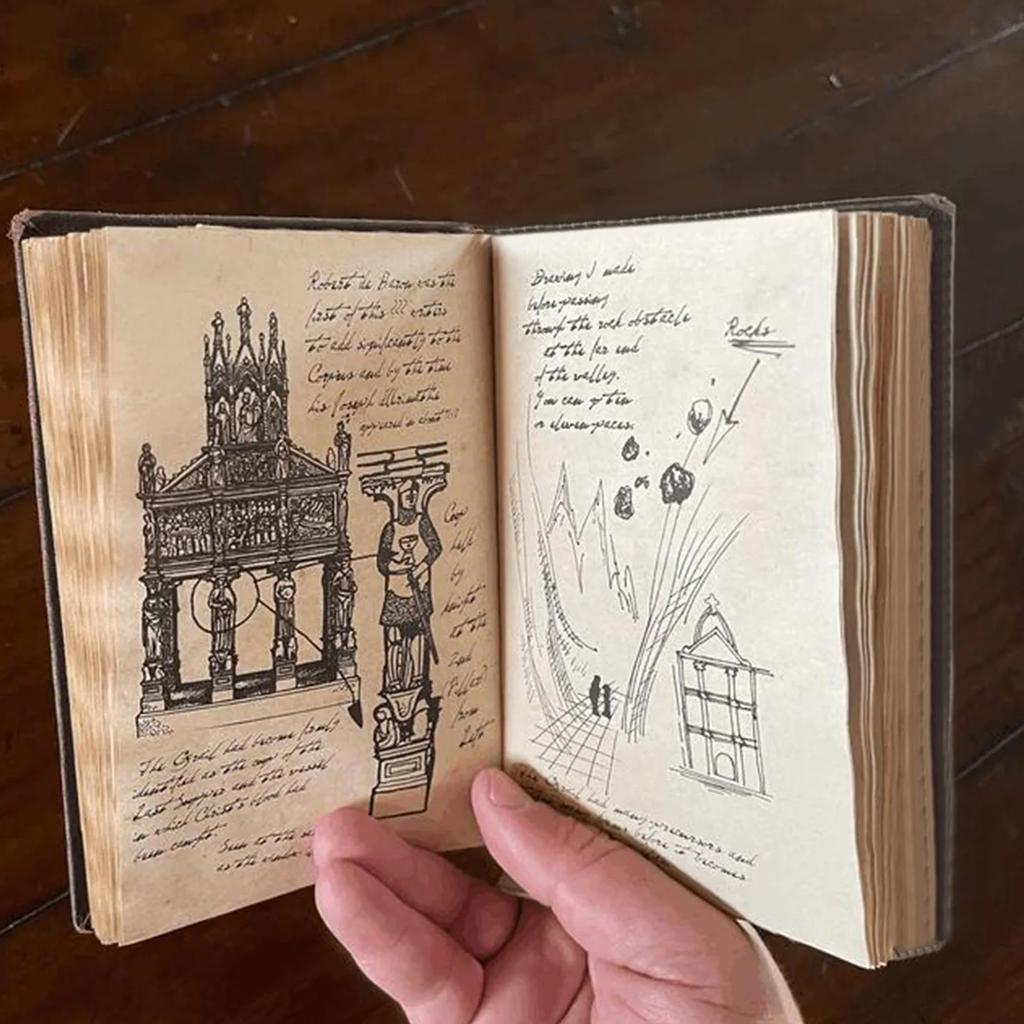 Robert de Baron was the
first of this ??? writers
to add significantly to the
Corpus and by the time
his Joseph
appeared in about
Cup
held
by
knight
at the
2nd
(Pillar)
from
Left
The Grail had become firmly
identified as the cup of the
Last Supper and the vessel
in which Christ's blood had
been caught.
Seen at the
as the
Drawing I made
before passing
through the rock obstacle
at the far end
of the valley.
You can go ten
or eleven paces.
Rocks
or
The had many precursors and
before it becomes